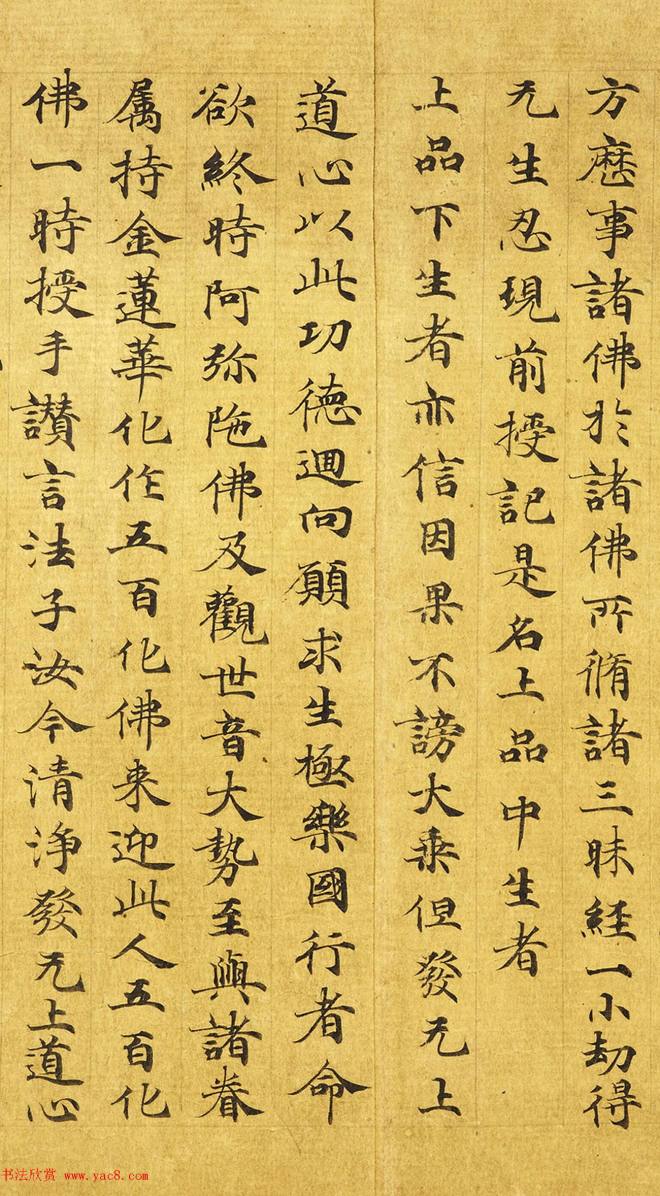 方歷事諸佛於諸佛所脩諸三昧經一小劫得
无生忍現前授記是名上品中生者
上品下生者亦信因果不謗大乘但發无上
道心以此功德迴向願求生極樂國行者命
欲終時阿弥陁佛及觀世音大勢至與諸眷
属持金蓮華化作五百化佛来迎此人五百化
佛一時授手讃言法子汝今清淨發无上道心
书法欣赏 www.yac8.com